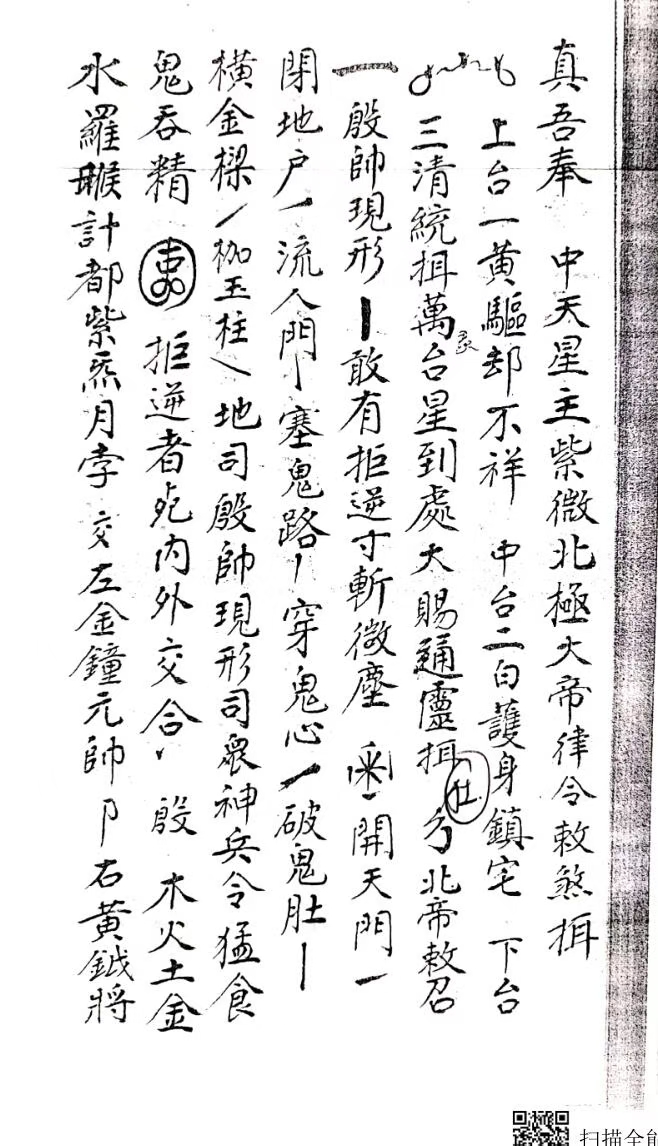 真吾奉 中天星主紫微北極大帝律令敕煞揖
上台一黄驅却不祥 中台二白護身鎮宅 下台
三清統揖萬台星到處大賜通靈揖 北帝敕召
殷帥現形 敢有拒逆寸斬微塵 開天門
閉地户 流人門 塞鬼路 穿鬼心 破鬼肚
橫金樑 枷玉柱 地司殷帥現形司眾神兵令猛食
鬼吞精 拒逆者死内外交合 殷 木火土金
水羅睺計都紫炁月孛交左金鐘元帥卩右黄鉞將
扫描全能